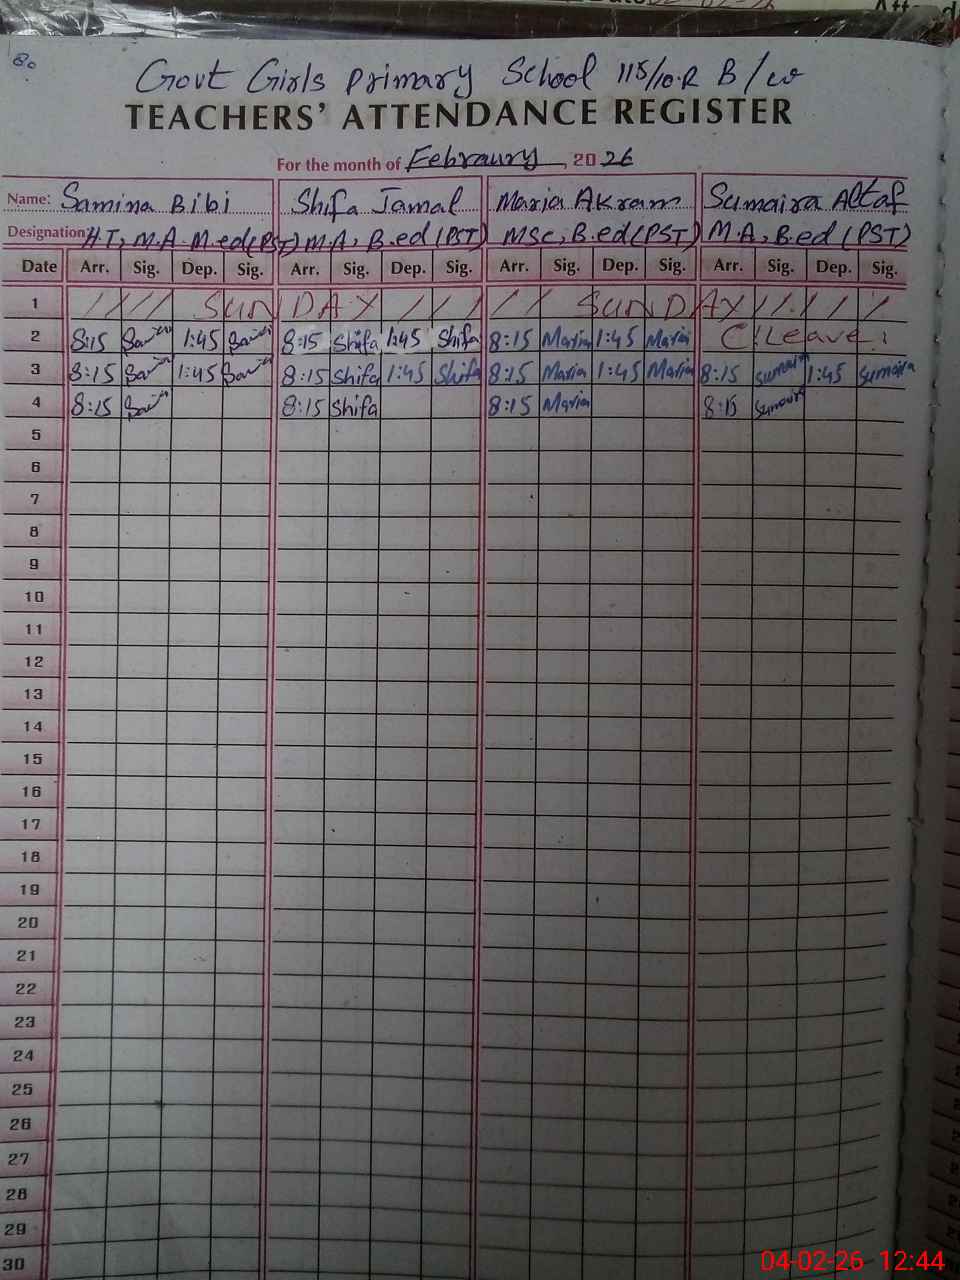 80
Govt Girls Primary School 115/10.R B/w
TEACHERS' ATTENDANCE REGISTER
For the month of Febraury, 20 26
Name: Samina Bibi Shifa Jamal Maria Akram Sumaira Altaf
Designation H.T, M.A. M.ed(PST) M.A, B.ed (PST) MSc, B.ed (PST) M.A, B.ed (PST)
Date Arr. Sig. Dep. Sig. Arr. Sig. Dep. Sig. Arr. Sig. Dep. Sig. Arr. Sig. Dep. Sig.
1 SUNDAY SUNDAY
2 8:15 1:45 8:15 Shifa 1:45 Shifa 8:15 Maria 1:45 Maria C.Leave.
3 8:15 1:45 8:15 Shifa 1:45 Shifa 8:15 Maria 1:45 Maria 8:15 Sumaira 1:45 Sumaira
4 8:15 8:15 Shifa 8:15 Maria 8:15 Sumaira
5
6
7
8
9
10
11
12
13
14
15
16
17
18
19
20
21
22
23
24
25
26
27
28
29
30
04-02-26 12:44